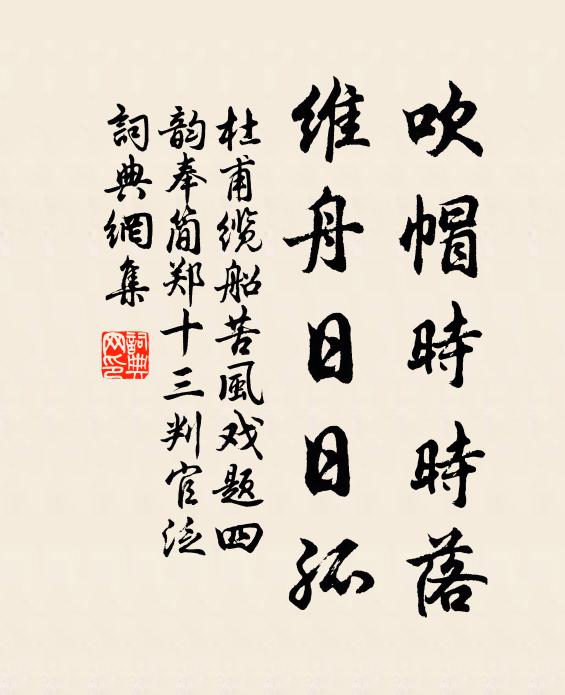 吹帽時時落
維舟日日孤
杜甫缆船苦風戏题四
韵奉简郑十三判官泛
詞典網集
詞典网印